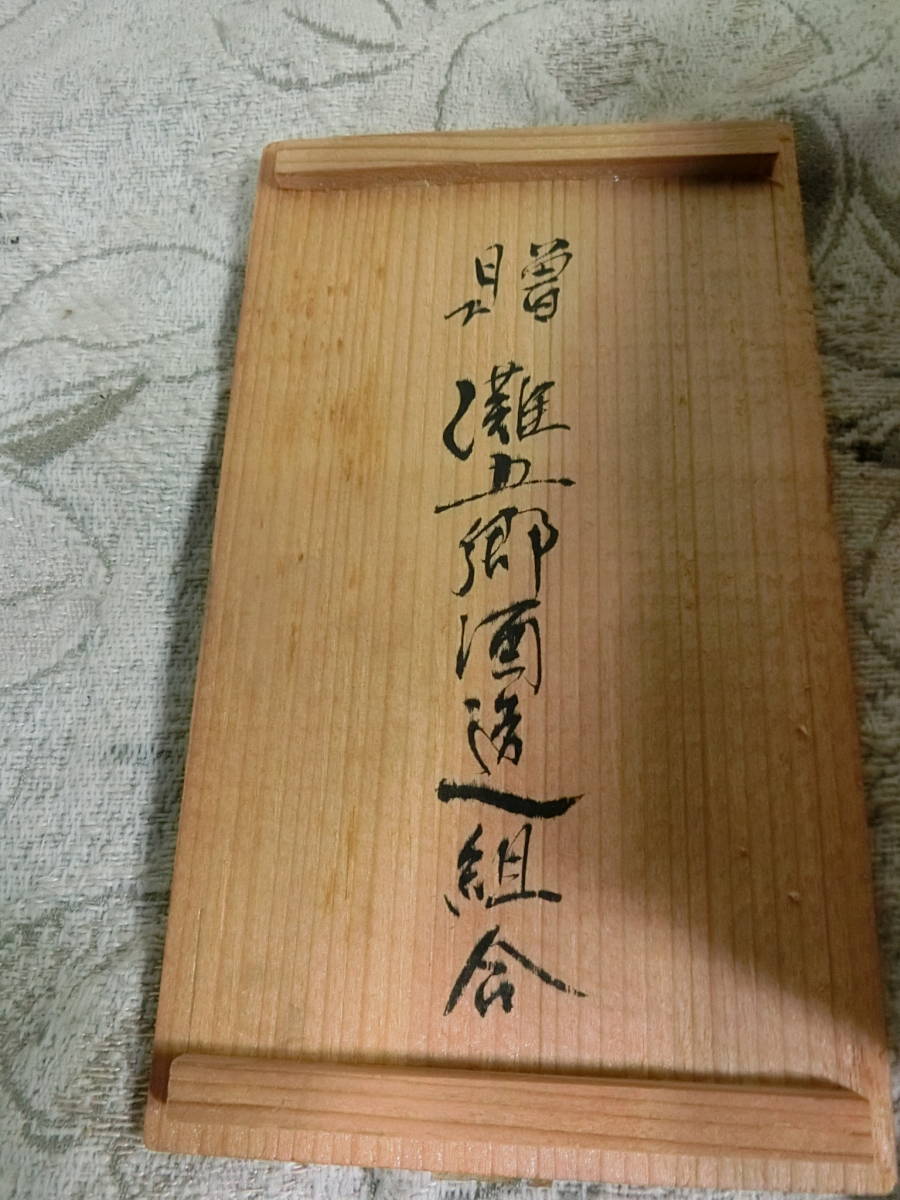 贈 灘五郷酒造組合